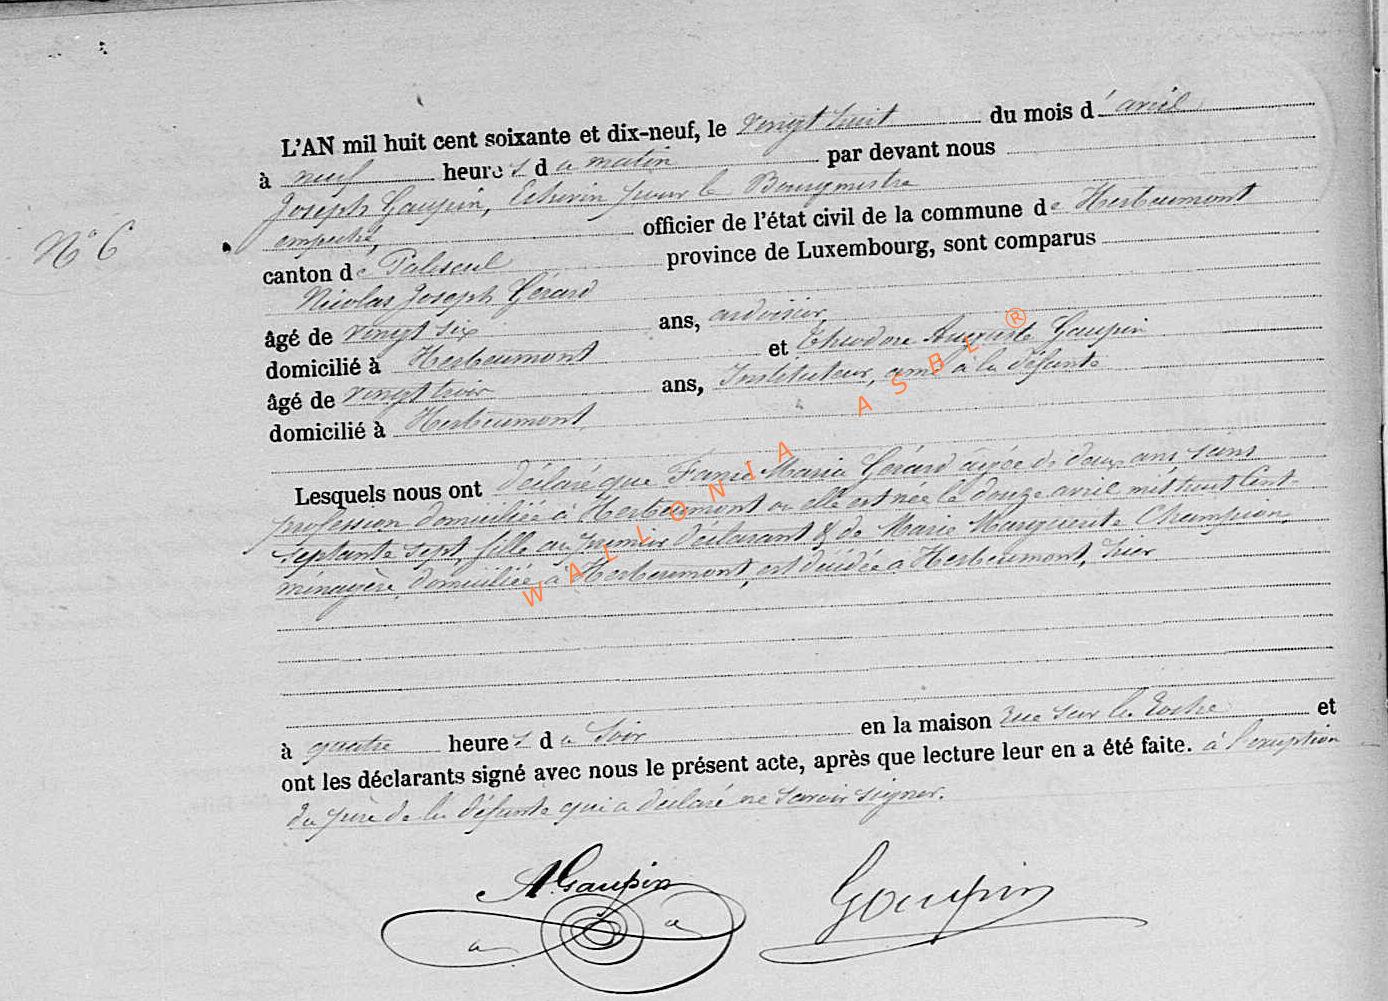 L'AN mil huit cent soixante et dix-neuf, le vingt huit du mois d'avril
à neuf heures du matin par devant nous
Joseph Gaupin, Echevin pour le Bourgmestre
N° 6
empeché, officier de l'état civil de la commune de Herbeumont
canton de Paliseul province de Luxembourg, sont comparus
Nicolas Joseph Gérard
âgé de vingt six ans, ardoisier
domicilié à Herbeumont et Théodore Auguste Gaupin
âgé de vingt trois ans, Instituteur, ami à la défunte
domicilié à Herbeumont
Lesquels nous ont déclaré que Marie Gérard agée de deux ans sans
profession domiciliée à Herbeumont où elle est née le douze avril mil huit cent
septante sept, fille au premier déclarant & de Marie Marguerite Champion,
ménagère, domiciliée à Herbeumont, est décédée à Herbeumont, hier
à quatre heures du soir en la maison rue sur la Roche et
ont les déclarants signé avec nous le présent acte, après que lecture leur en a été faite. à l'exception
du père de la défunte qui a déclaré ne savoir signer.
A Gaupin
Gaupin
WALLONIA ASBL ®